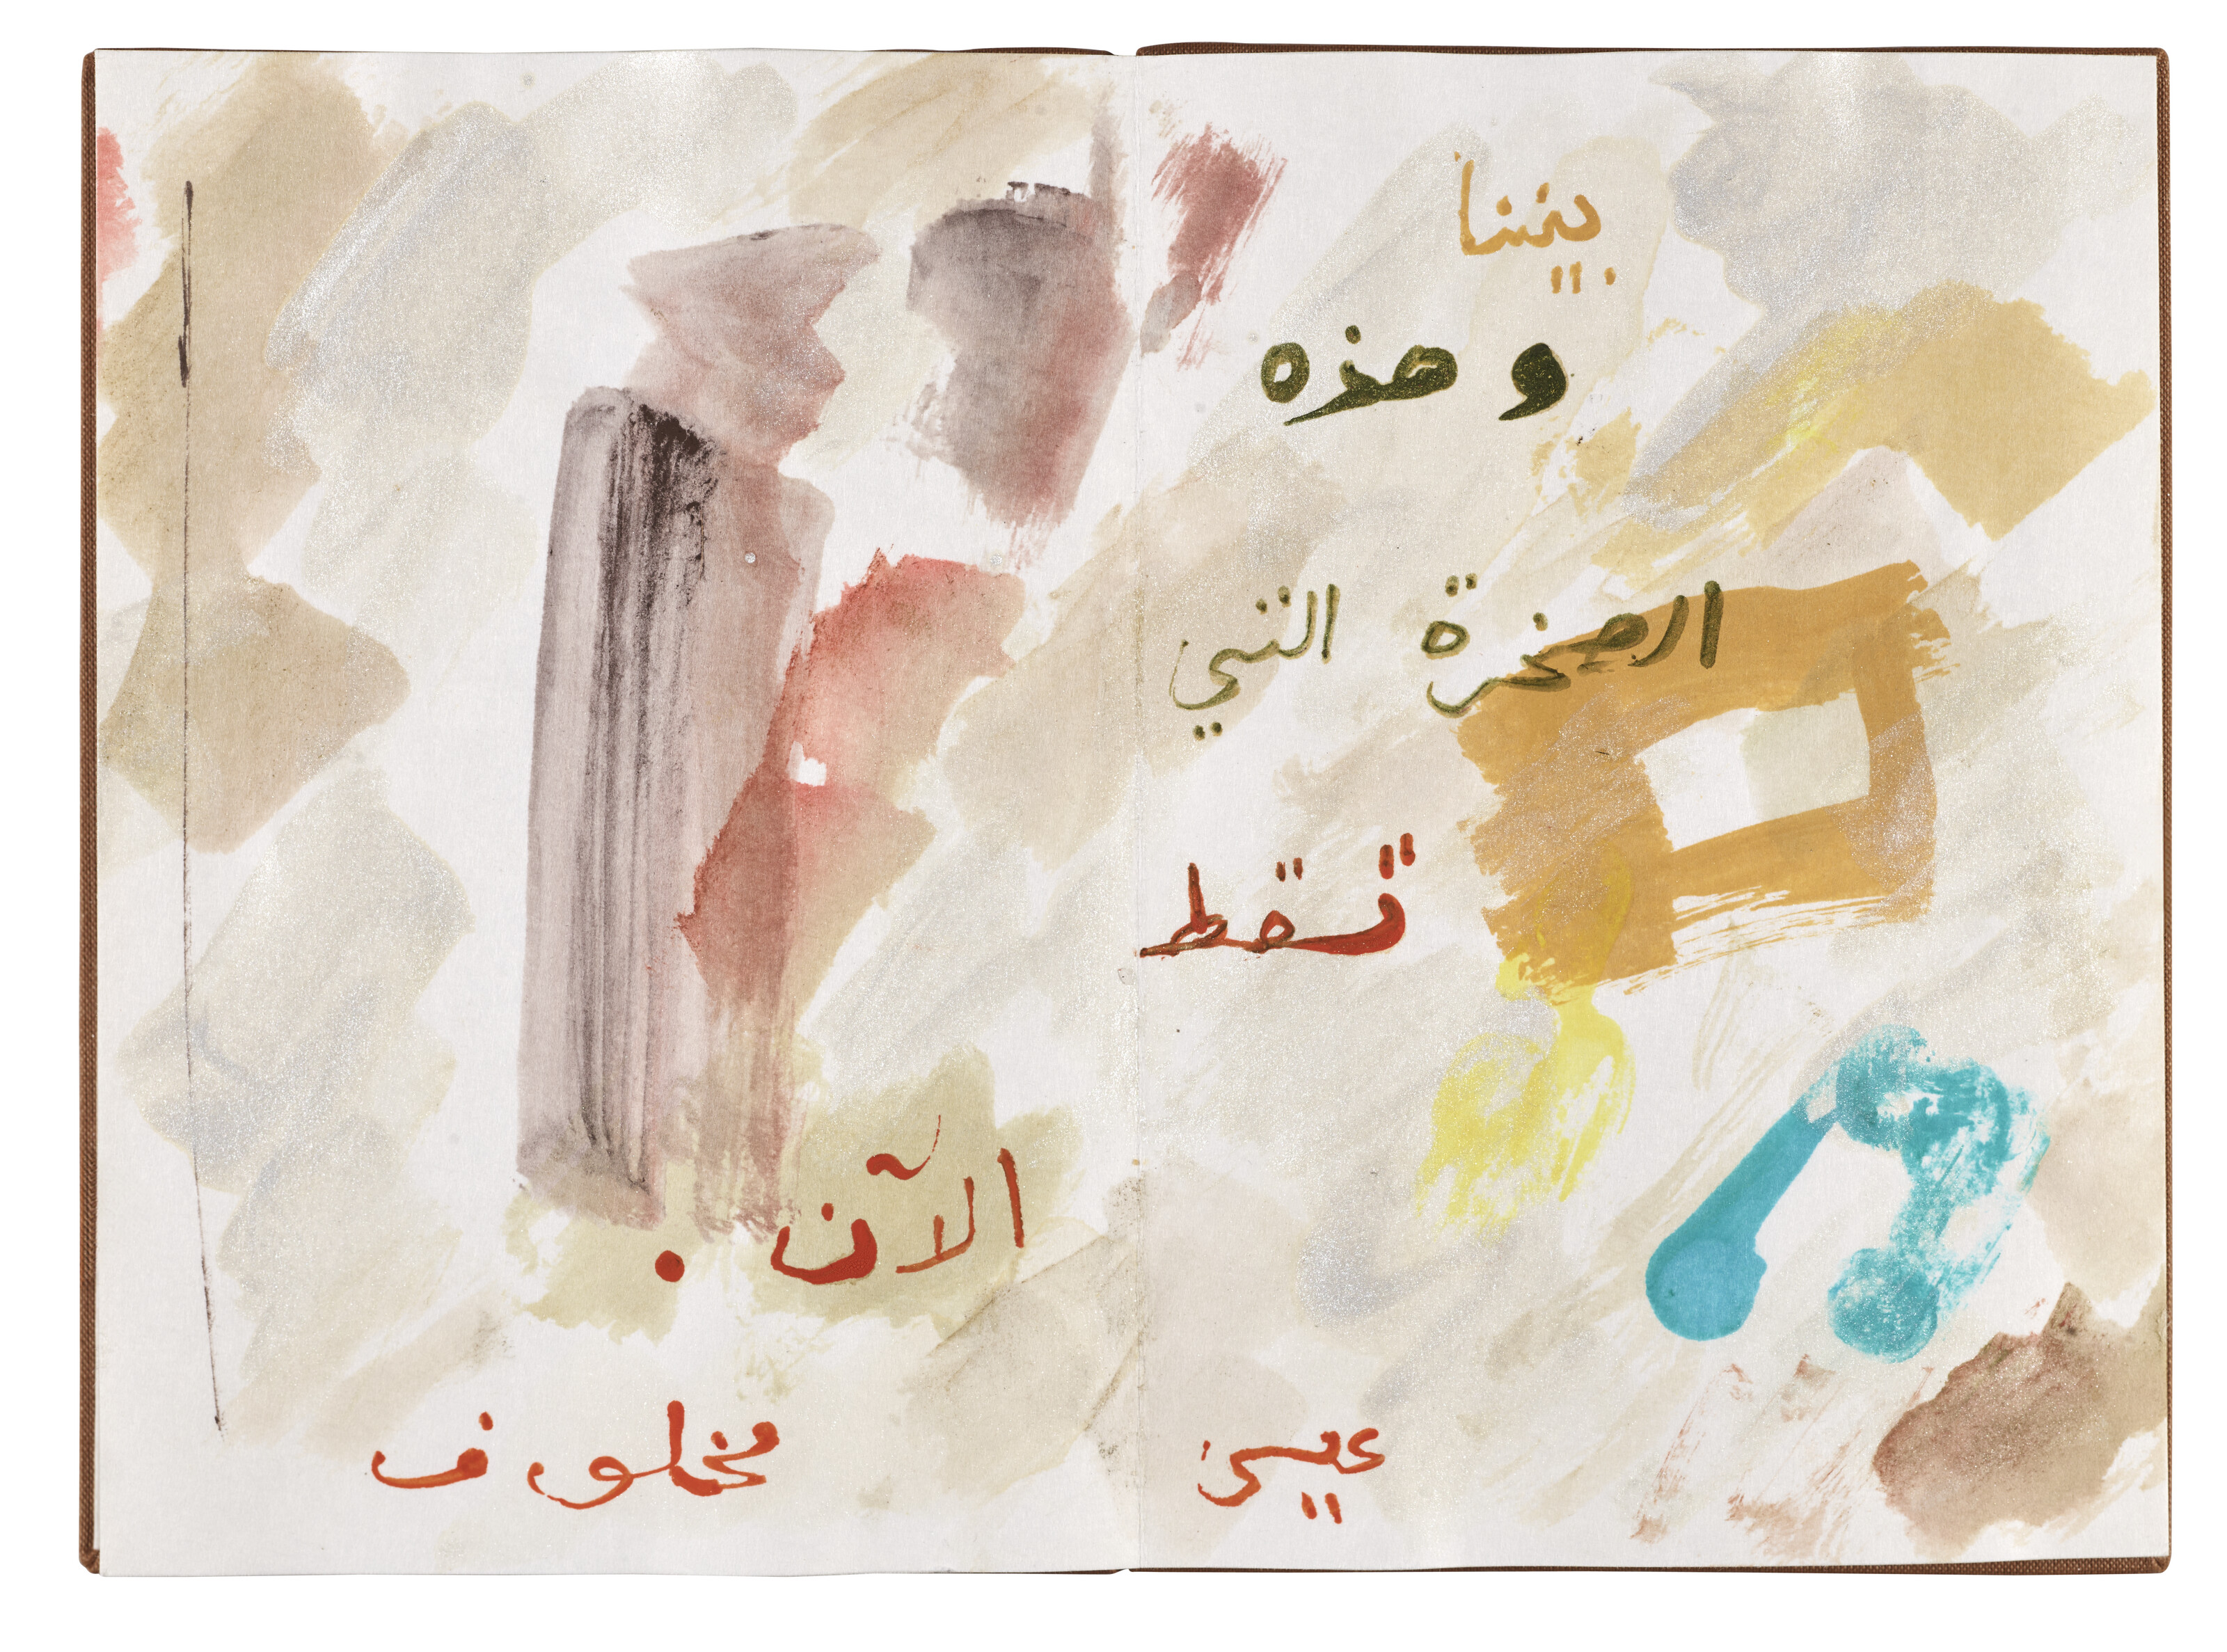 بيننا
وهذه
الصخرة التي
تسقط
الآن .
عيسى مخلوف